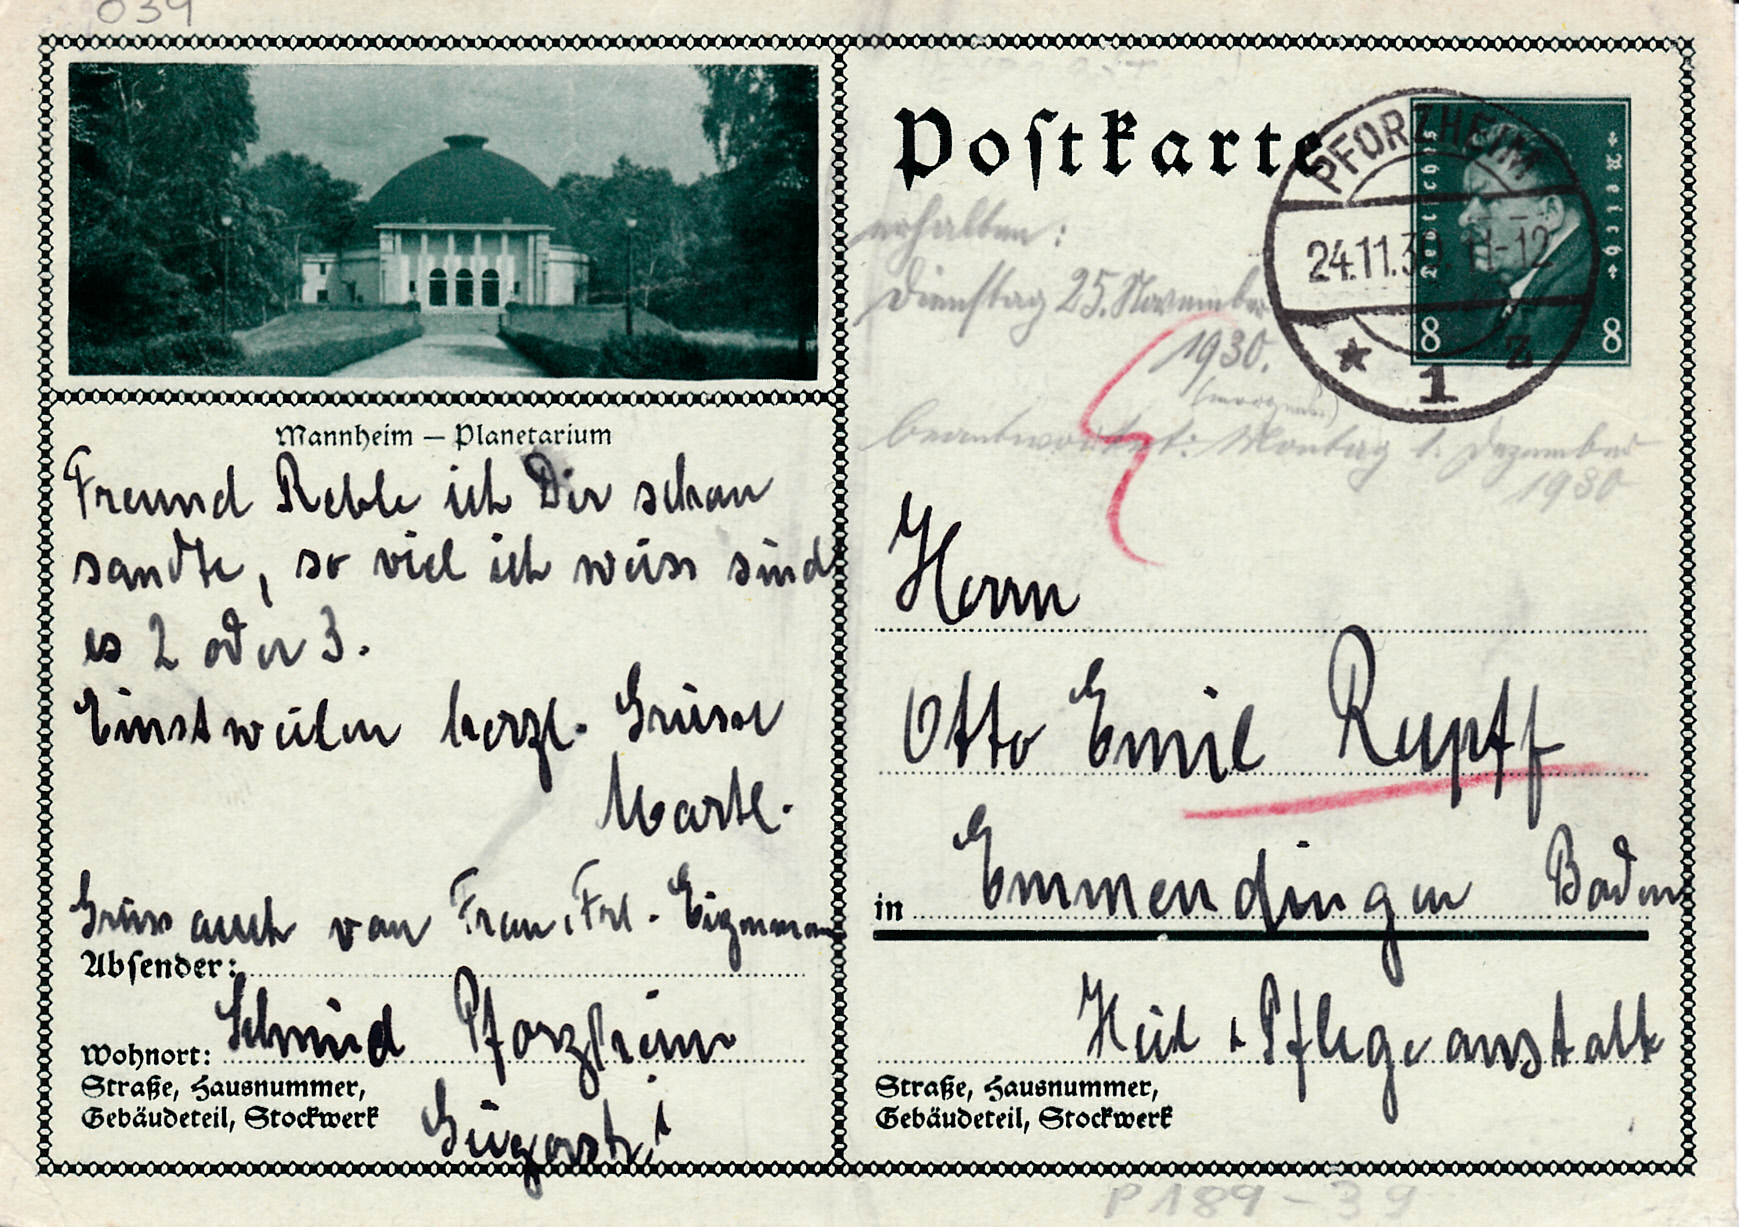 039
Mannheim — Planetarium
Freund Reble ich Dir schon
sandte, so viel ich weiss sind
es 2 oder 3.
Einstweilen herzl. Grüsse
Gruss auch von Frau, Frl.
Absender:
Schmid Pforzheim
Wohnort:
Straße, Hausnummer,
Gebäudeteil, Stockwerk
Postkarte
PFORZHEIM
24.11.30. 11-12
* 1 z
Deutsches Reich
8 8
erhalten:
Dienstag 25. November
1930.
beantwortet: Montag 1. Dezember
1930
Herrn
Otto Emil Rupff
in Emmendingen Baden
Heil & Pflegeanstalt
Straße, Hausnummer,
Gebäudeteil, Stockwerk
P 189 - 39